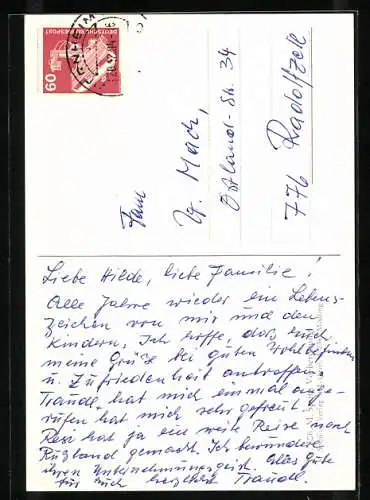 60
DEUTSCHE BUNDESPOST
Fam
Mach,
Ostland-Str. 34
776 Radolfzell
Liebe Hilde, liebe Familie!
Alle Jahre wieder ein Lebens-
zeichen von mir und den
Kindern. Ich hoffe, dass euch
meine Grüße bei guten Wohlbefinden
u. Zufriedenheit antreffen.
Traude, hat mich einmal ange-
rufen hat mich sehr gefreut.
hat ja ein weite Reise nach
Rußland gemacht. Ich bewundere
ihren Unternehmungsgeist. Alles Gute
für Euch herzlichst Traude.